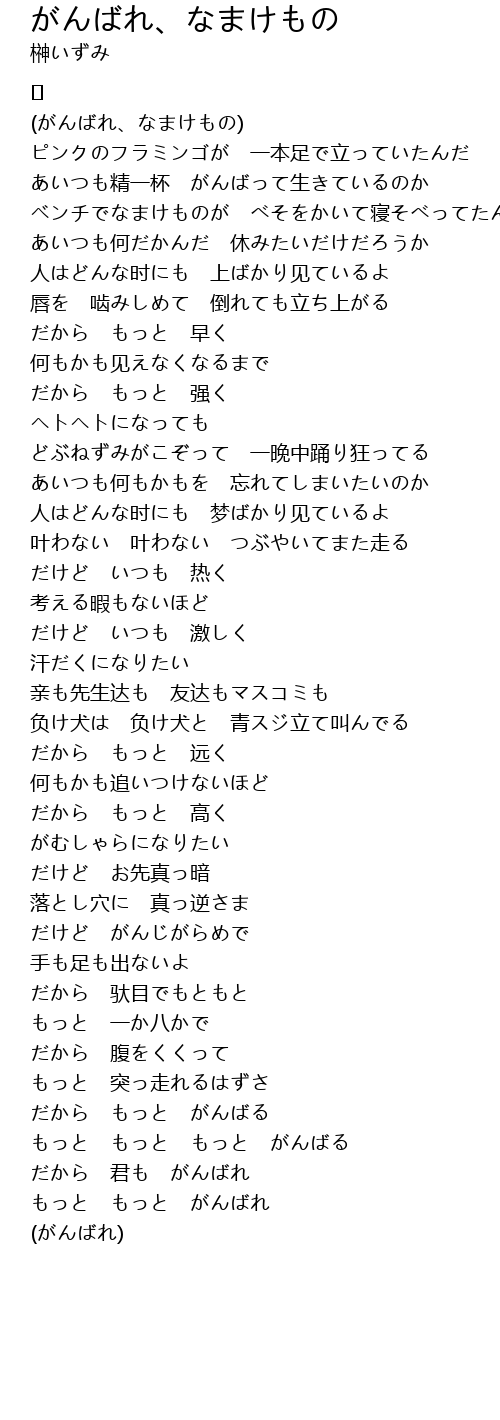 がんばれ、なまけもの
榊いずみ
[]
(がんばれ、なまけもの)
ピンクのフラミンゴが　一本足で立っていたんだ
あいつも精一杯　がんばって生きているのか
ベンチでなまけものが　べそをかいて寝そべってたん
あいつも何だかんだ　休みたいだけだろうか
人はどんな时にも　上ばかり见ているよ
唇を　啮みしめて　倒れても立ち上がる
だから　もっと　早く
何もかも见えなくなるまで
だから　もっと　强く
ヘトヘトになっても
どぶねずみがこぞって　一晩中踊り狂ってる
あいつも何もかもを　忘れてしまいたいのか
人はどんな时にも　梦ばかり见ているよ
叶わない　叶わない　つぶやいてまた走る
だけど　いつも　热く
考える暇もないほど
だけど　いつも　激しく
汗だくになりたい
亲も先生达も　友达もマスコミも
负け犬は　负け犬と　青スジ立て叫んでる
だから　もっと　远く
何もかも追いつけないほど
だから　もっと　高く
がむしゃらになりたい
だけど　お先真っ暗
落とし穴に　真っ逆さま
だけど　がんじがらめで
手も足も出ないよ
だから　驮目でもともと
もっと　一か八かで
だから　腹をくくって
もっと　突っ走れるはずさ
だから　もっと　がんばる
もっと　もっと　もっと　がんばる
だから　君も　がんばれ
もっと　もっと　がんばれ
(がんばれ)